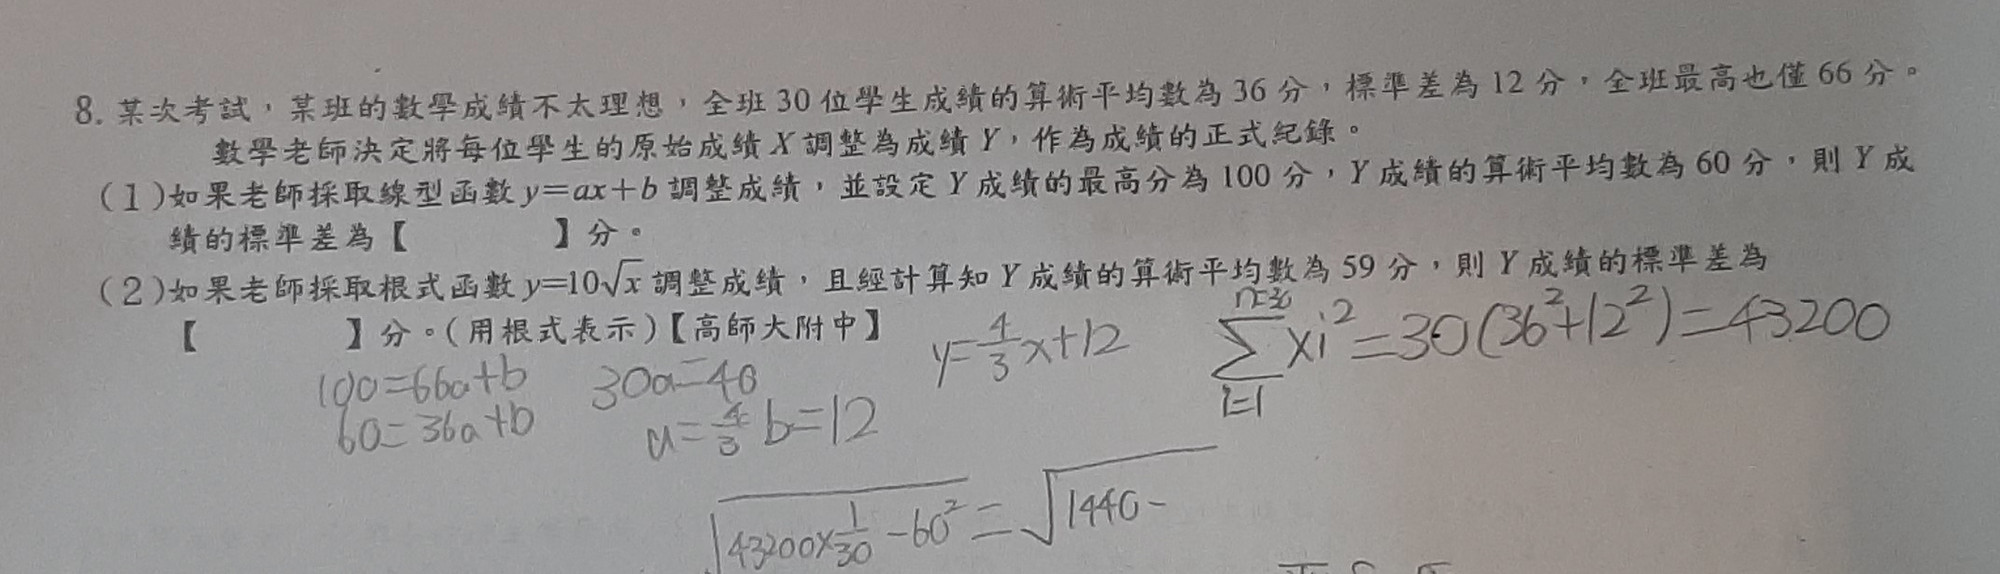 8. 某次考試，某班的數學成績不太理想，全班 30 位學生成績的算術平均數為 36 分，標準差為 12 分，全班最高也僅 66 分。
數學老師決定將每位學生的原始成績 X 調整為成績 Y，作為成績的正式紀錄。
(1)如果老師採取線型函數 y=ax+b 調整成績，並設定 Y 成績的最高分為 100 分，Y 成績的算術平均數為 60 分，則 Y 成
績的標準差為【　　　】分。
(2)如果老師採取根式函數 y=10√x 調整成績，且經計算知 Y 成績的算術平均數為 59 分，則 Y 成績的標準差為
【　　　】分。(用根式表示)【高師大附中】
100=66a+b 30a=40 y=4/3x+12 Σ xi²=30(36²+12²)=43200
60=36a+b a=4/3 b=12 i=1
√43200×1/30-60² = √1440-